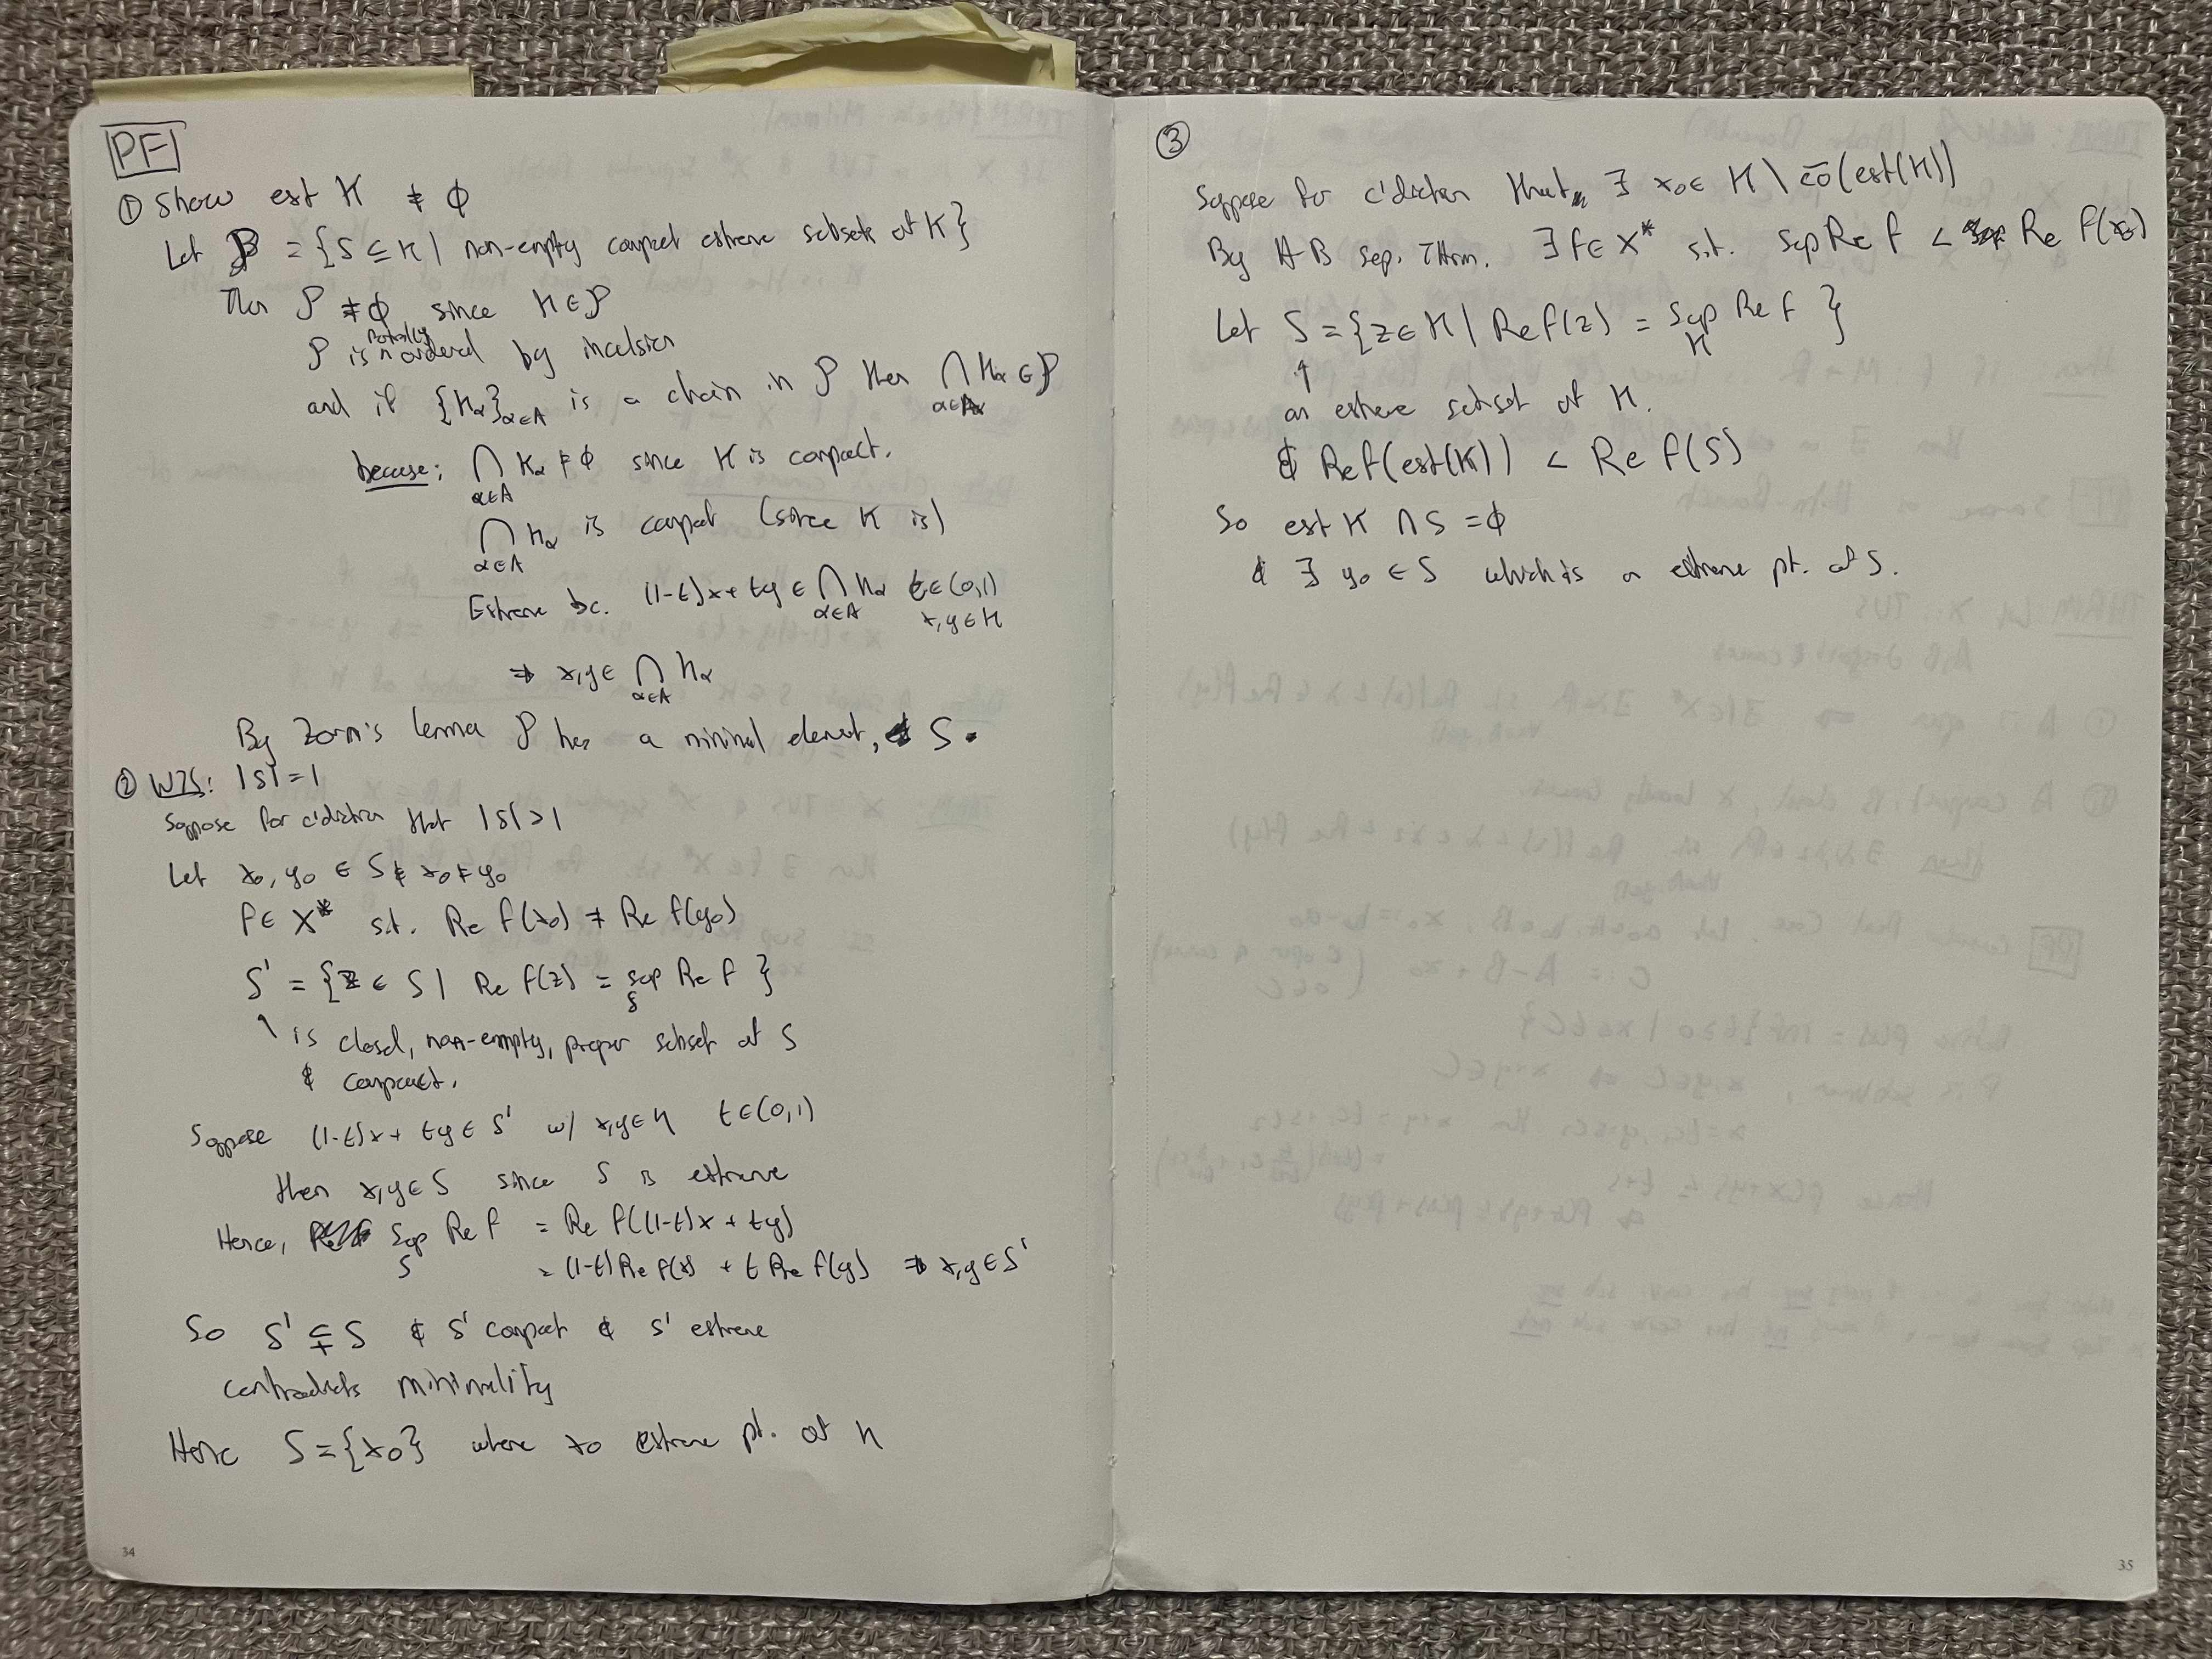 PF
① Show ext K ≠ ∅
Let P = {S ⊆ K | non-empty compact extreme subsets of K}
Then P ≠ ∅ since K ∈ P
P is partially ordered by inclusion
and if {Kα}α∈A is a chain in P then ⋂α∈A Kα ∈ P
because: ⋂α∈A Kα ≠ ∅ since K is compact.
⋂α∈A Kα is compact (since K is)
Extreme bc. (1-t)x + ty ∈ ⋂α∈A Kα t∈(0,1) x,y ∈ K
⇒ x,y ∈ ⋂α∈A Kα
By Zorn's lemma P has a minimal element, S.
② WTS: |S| = 1
Suppose for c'diction that |S| > 1
Let x₀, y₀ ∈ S & x₀ ≠ y₀
f ∈ X* s.t. Re f(x₀) ≠ Re f(y₀)
S' = {z ∈ S | Re f(z) = sup_S Re f}
↑ is closed, non-empty, proper subset of S
& compact.
Suppose (1-t)x + ty ∈ S' w/ x,y ∈ K t∈(0,1)
then x,y ∈ S since S is extreme
Hence, sup_S Re f = Re f((1-t)x + ty)
= (1-t)Re f(x) + t Re f(y) ⇒ x,y ∈ S'
So S' ⊊ S & S' compact & S' extreme
contradicts minimality
Hence S = {x₀} where x₀ extreme pt. of K
34
③
Suppose for c'diction that ∃ x₀ ∈ K \ c̄o(ext(K))
By H-B sep. Thm. ∃ f ∈ X* s.t. sup Re f < Re f(x₀)
Let S = {z ∈ K | Re f(z) = sup_K Re f}
↑
an extreme subset of K.
& Re f(ext(K)) < Re f(S)
So ext K ∩ S = ∅
& ∃ y₀ ∈ S which is a extreme pt. of S.
35